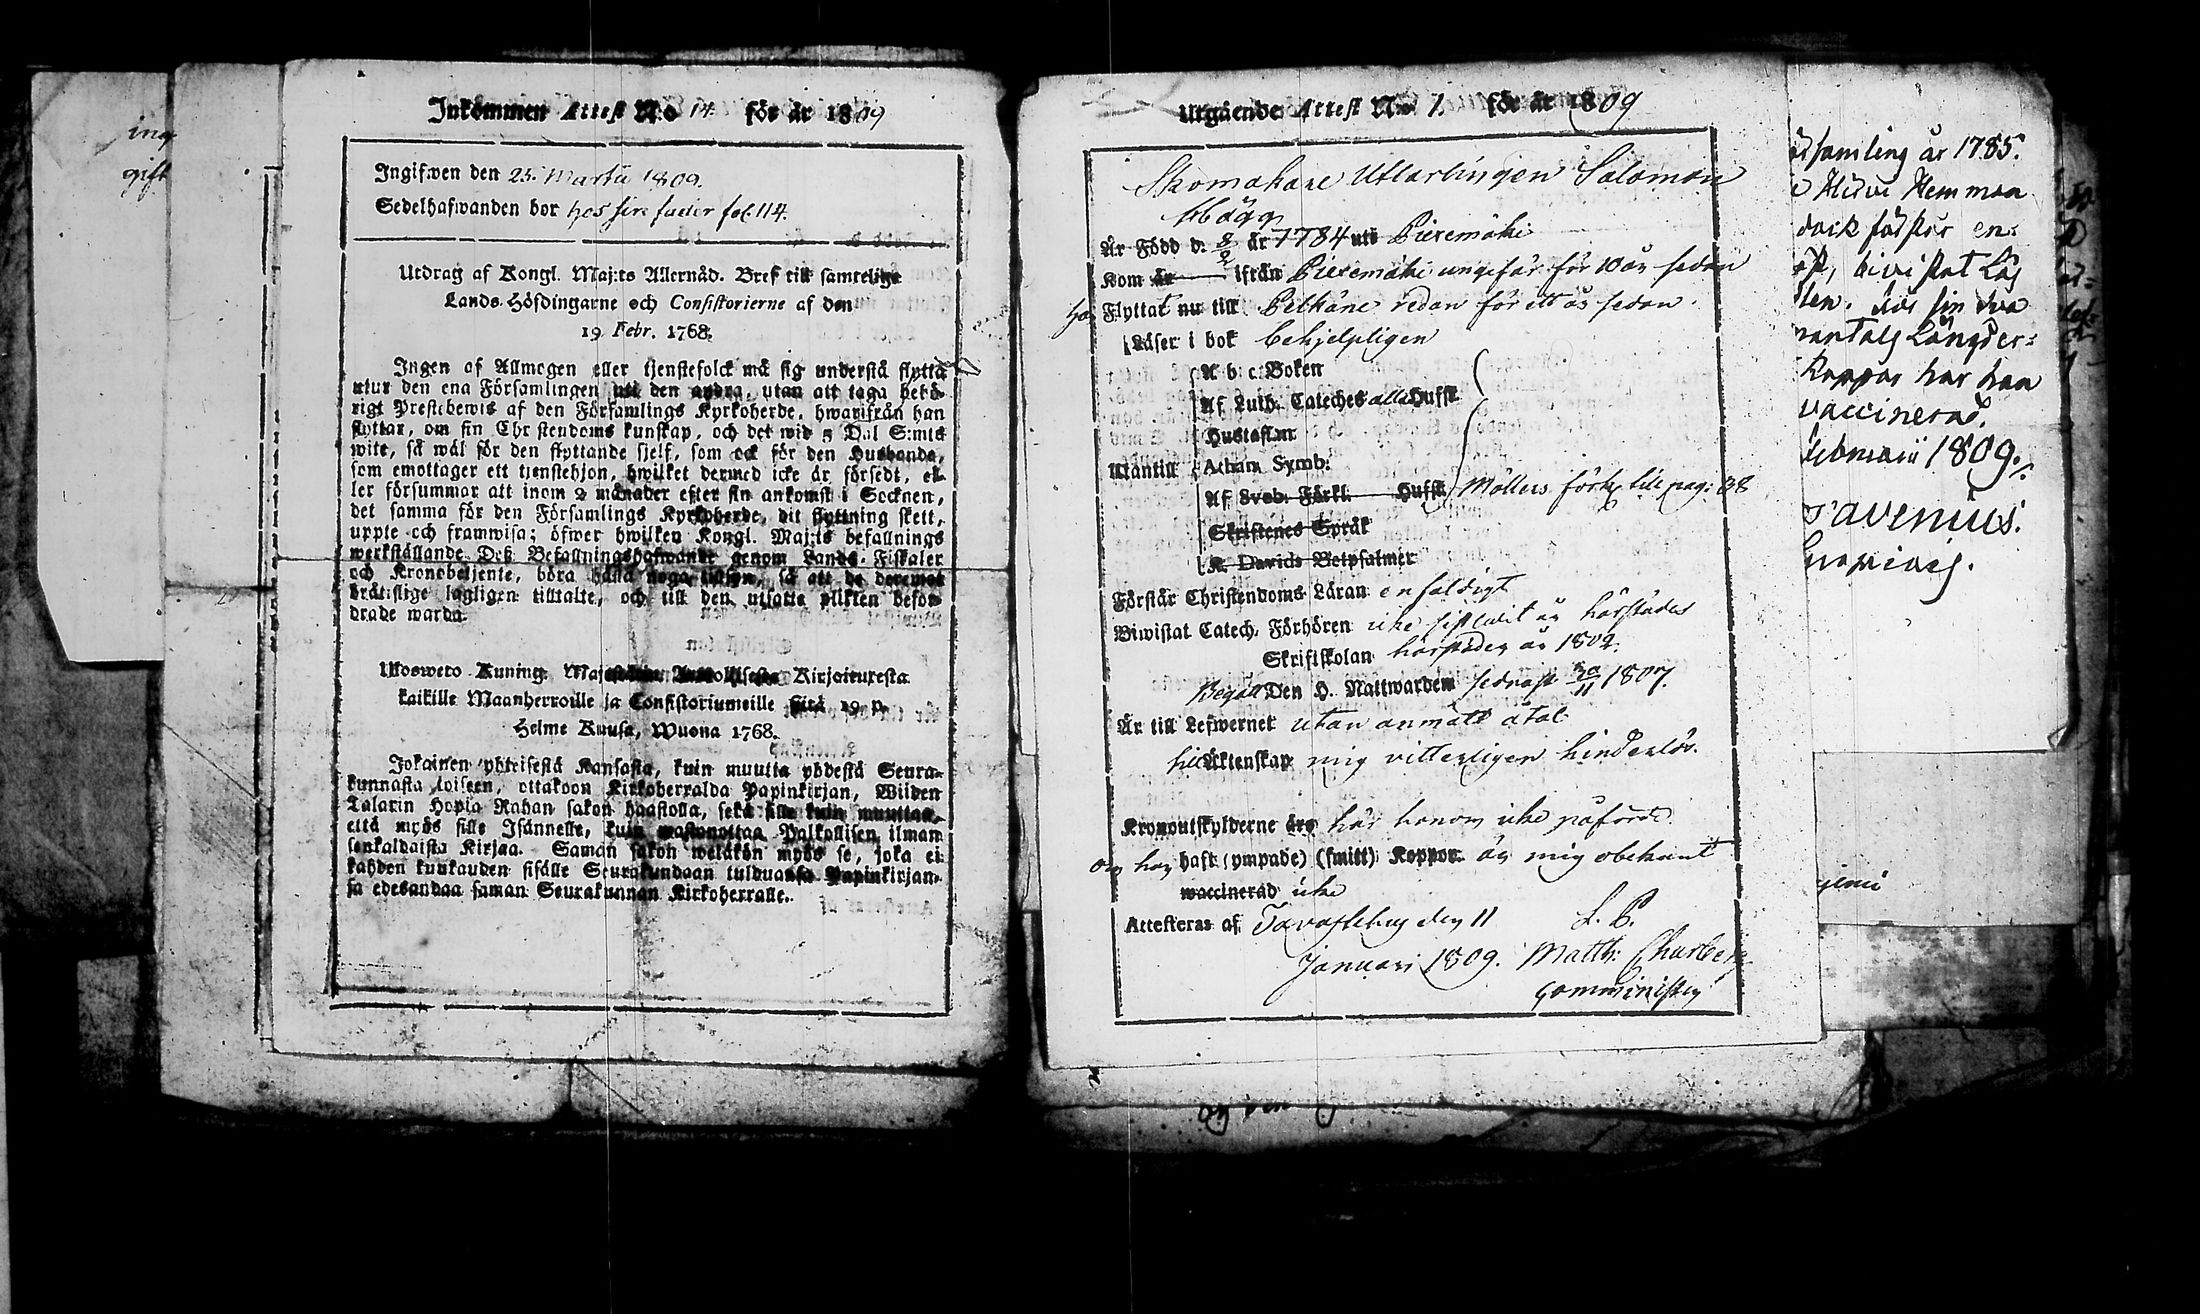 ing
gift
Inkommen Attest N:o 14. för år 1809
Ingifwen den 25. Martii 1809.
Sedelhafwanden bor hos sin fader fol. 114.
Utdrag af Kongl. Maj:ts Allernåd. Bref till samtelige
Lands-Höfdingarne och Consistorierne af den
19 Febr. 1768.
Ingen af Allmogen eller tjenstefolck må sig understå flytta
utur den ena Församlingen uti den andra, utan att taga behö-
rigt Prestebewis af den Församlings Kyrkoherde, hwarifrån han
flyttar, om sin Christendoms kunskap, och det wid 5 Dal. S:mts
wite, så wäl för den flyttande sjelf, som ock för den Husbonde,
som emottager ett tjenstehjon, hwilket dermed icke är försedt, el-
ler försummar att inom 2 månader efter sin ankomst i Socknen,
det samma för den Församlings Kyrkoherde, dit flyttning skett,
uppte och framwisa; öfwer hwilken Kongl. Maj:ts befallnings
werkställande Deß Befallningshafwande genom Lands-Fiskaler
och Kronobetjente, böra hålla noga tillsyn, så att de deremot
brätslige lagligen tilltalte, och till den utsatte plikten befor-
drade warda.
Uloswето Kuning. Kirjoituxesta
kaikille Maanherroille ja Consistoriumeille siitä 19 p.
Helme Kuusa, Wuona 1768.
Jokainen yhteisestä Kansasta, kuin muutta yhdestä Seura-
kunnasta toiseen, ottakoon Kirkoherralda Papinkirjan, Wiiden
Talarin Hopia Rahan sakon haastolla, sekä sille kuin muuttaa,
että myös sille Isännelle, kuin wastanottaa Palkollisen ilman
senkaldaista Kirjaa. Saman sakon wetäkön myös se, joka ei
kahden kuukauden sisälle Seurakundaan tulduansa Papinkirjan-
sa edesandaa saman Seurakunnan Kirkoherralle.
Utgående Attest N:o 1. för år 1809
Skomakare Utlärlingen Salomon
Hägg
År Född d. 8/2 år 1784 uti Pirxemäki
Kom år ifrån Pirxemäki ungefär för 10 år sedan
har Flyttat nu till Pelkäne redan för ett år sedan.
Läser i bok behjelpligen
A b c Boken
Af Luth. Cateches alla Hufst.
Hustaflan
Utantill Athan. Symb.
Af Sveb. Förkl. Hufst. Möllers förk. till pag: 38
Skriftenes Språk
K. Davids Botpsalmer
Förstår Christendoms Läran enfaldigt
Biwistat Catech. Förhören icke härstädes
Skriftskolan härstädes år 1802.
Begått Den H. Nattwarden sednast 20/11 1807.
Är till Lefwernet utan anmält åtal
till Äktenskap mig vitterligen hinderlös.
Kronoutskylderne äro här honom icke påförde
om han haft (ympade) (smitt) Koppor är mig obekant
waccinerad icke
Attesteras af Tavastehus den 11 L. S.
Januari 1809. Matth: Charberg
Comminister
samling år 1785.
Hemman
dock förstår en-
bivistat Läs
sin
mantals Längder-
Koppor har han
vaccinerad.
Februarii 1809.
ravenius.